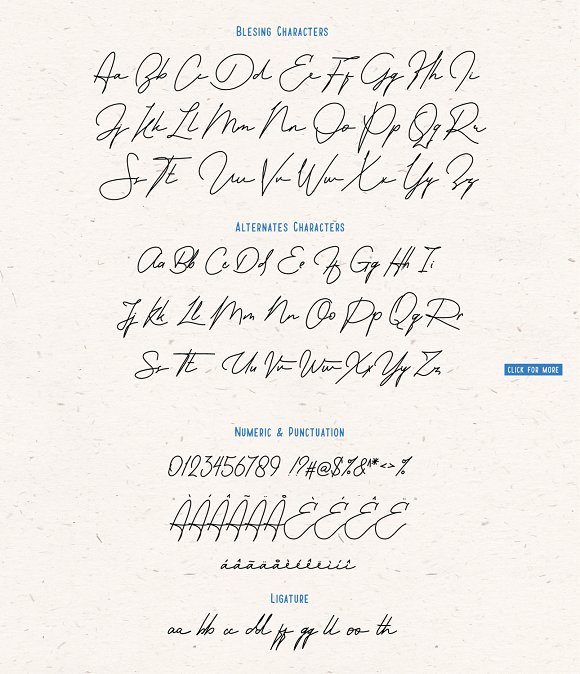 Blesing Characters
Aa Bb Cc Dd Ee Ff Gg Hh Ii
Jj Kk Ll Mm Nn Oo Pp Qq Rr
Ss Tt Uu Vv Ww Xx Yy Zz
Alternates Characters
Aa Bb Cc Dd Ee Ff Gg Hh Ii
Jj Kk Ll Mm Nn Oo Pp Qq Rr
Ss Tt Uu Vv Ww Xx Yy Zz
CLICK FOR MORE
Numeric & Punctuation
0123456789 !?#@$%&^*<>%
ÀÁÂÃÄÅÈÉÊË
áâãäåèéêëìíî
Ligature
aa bb cc dd ff gg ll oo th